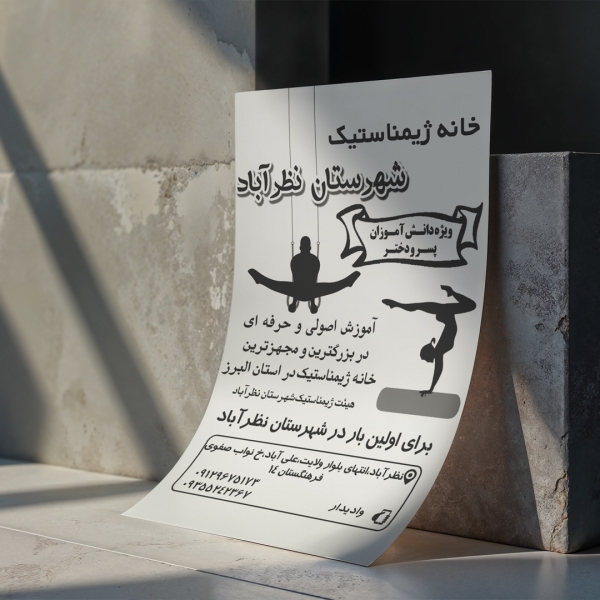 خانه ژیمناستیک
شهرستان نظرآباد
ویژه دانش آموزان
پسر و دختر
آموزش اصولی و حرفه ای
در بزرگترین و مجهزترین
خانه ژیمناستیک در استان البرز
هیئت ژیمناستیک شهرستان نظرآباد
برای اولین بار در شهرستان نظرآباد
نظرآباد،انتهای بلوار ولایت،علی آباد،خ نواب صفوی
فرهنگستان ۱۴
۰۹۱۲۹۶۷۵۱۷۳
۰۹۳۵۵۲۴۲۳۶۷
وادیدار